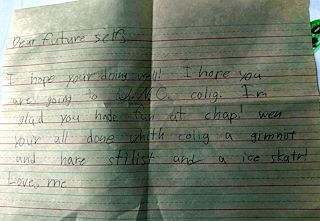 Dear future self,
I hope your doing well! I hope you
are going to colig. I'm
glad you hade fun at chap! wen
your all done whith colig a gimnist
and hare stilist and a ice skatr!
Love, me